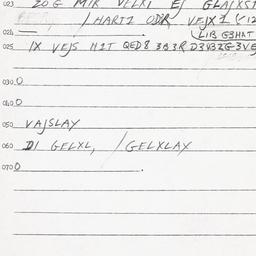 023 20 G MIK VELXI EJ GLAJXST
/ HARTZ ODR VEJX 1
024
LIB G3HAT
025 IX VEJS NIT QED8 3B3R D3V32G3VE
030 0
040 0
050 VAJSLAY
060 DI GELXL, / GELXLAY
070 0